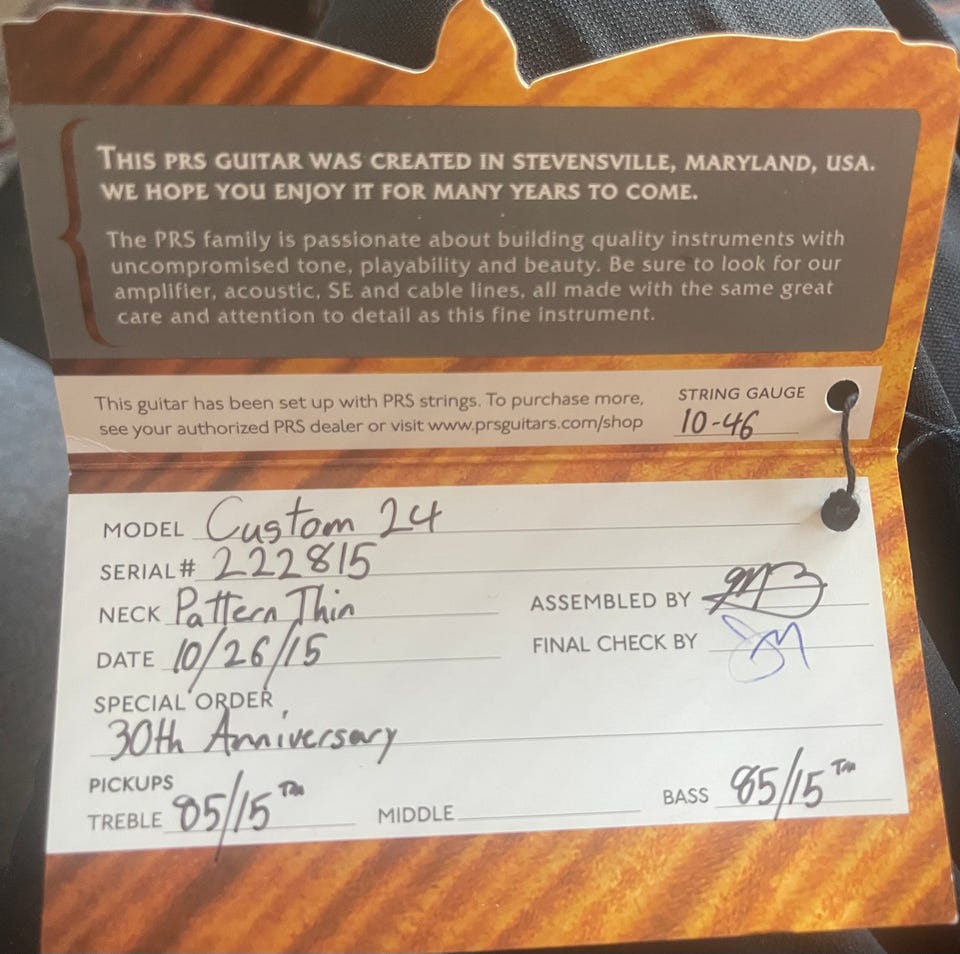 THIS PRS GUITAR WAS CREATED IN STEVENSVILLE, MARYLAND, USA.
WE HOPE YOU ENJOY IT FOR MANY YEARS TO COME.
The PRS family is passionate about building quality instruments with
uncompromised tone, playability and beauty. Be sure to look for our
amplifier, acoustic, SE and cable lines, all made with the same great
care and attention to detail as this fine instrument.
This guitar has been set up with PRS strings. To purchase more,
see your authorized PRS dealer or visit www.prsguitars.com/shop
STRING GAUGE
10-46
MODEL Custom 24
SERIAL# 222815
NECK Pattern Thin
ASSEMBLED BY
DATE 10/26/15
FINAL CHECK BY
SPECIAL ORDER
30th Anniversary
PICKUPS
TREBLE 85/15 TM
MIDDLE
BASS 85/15 TM